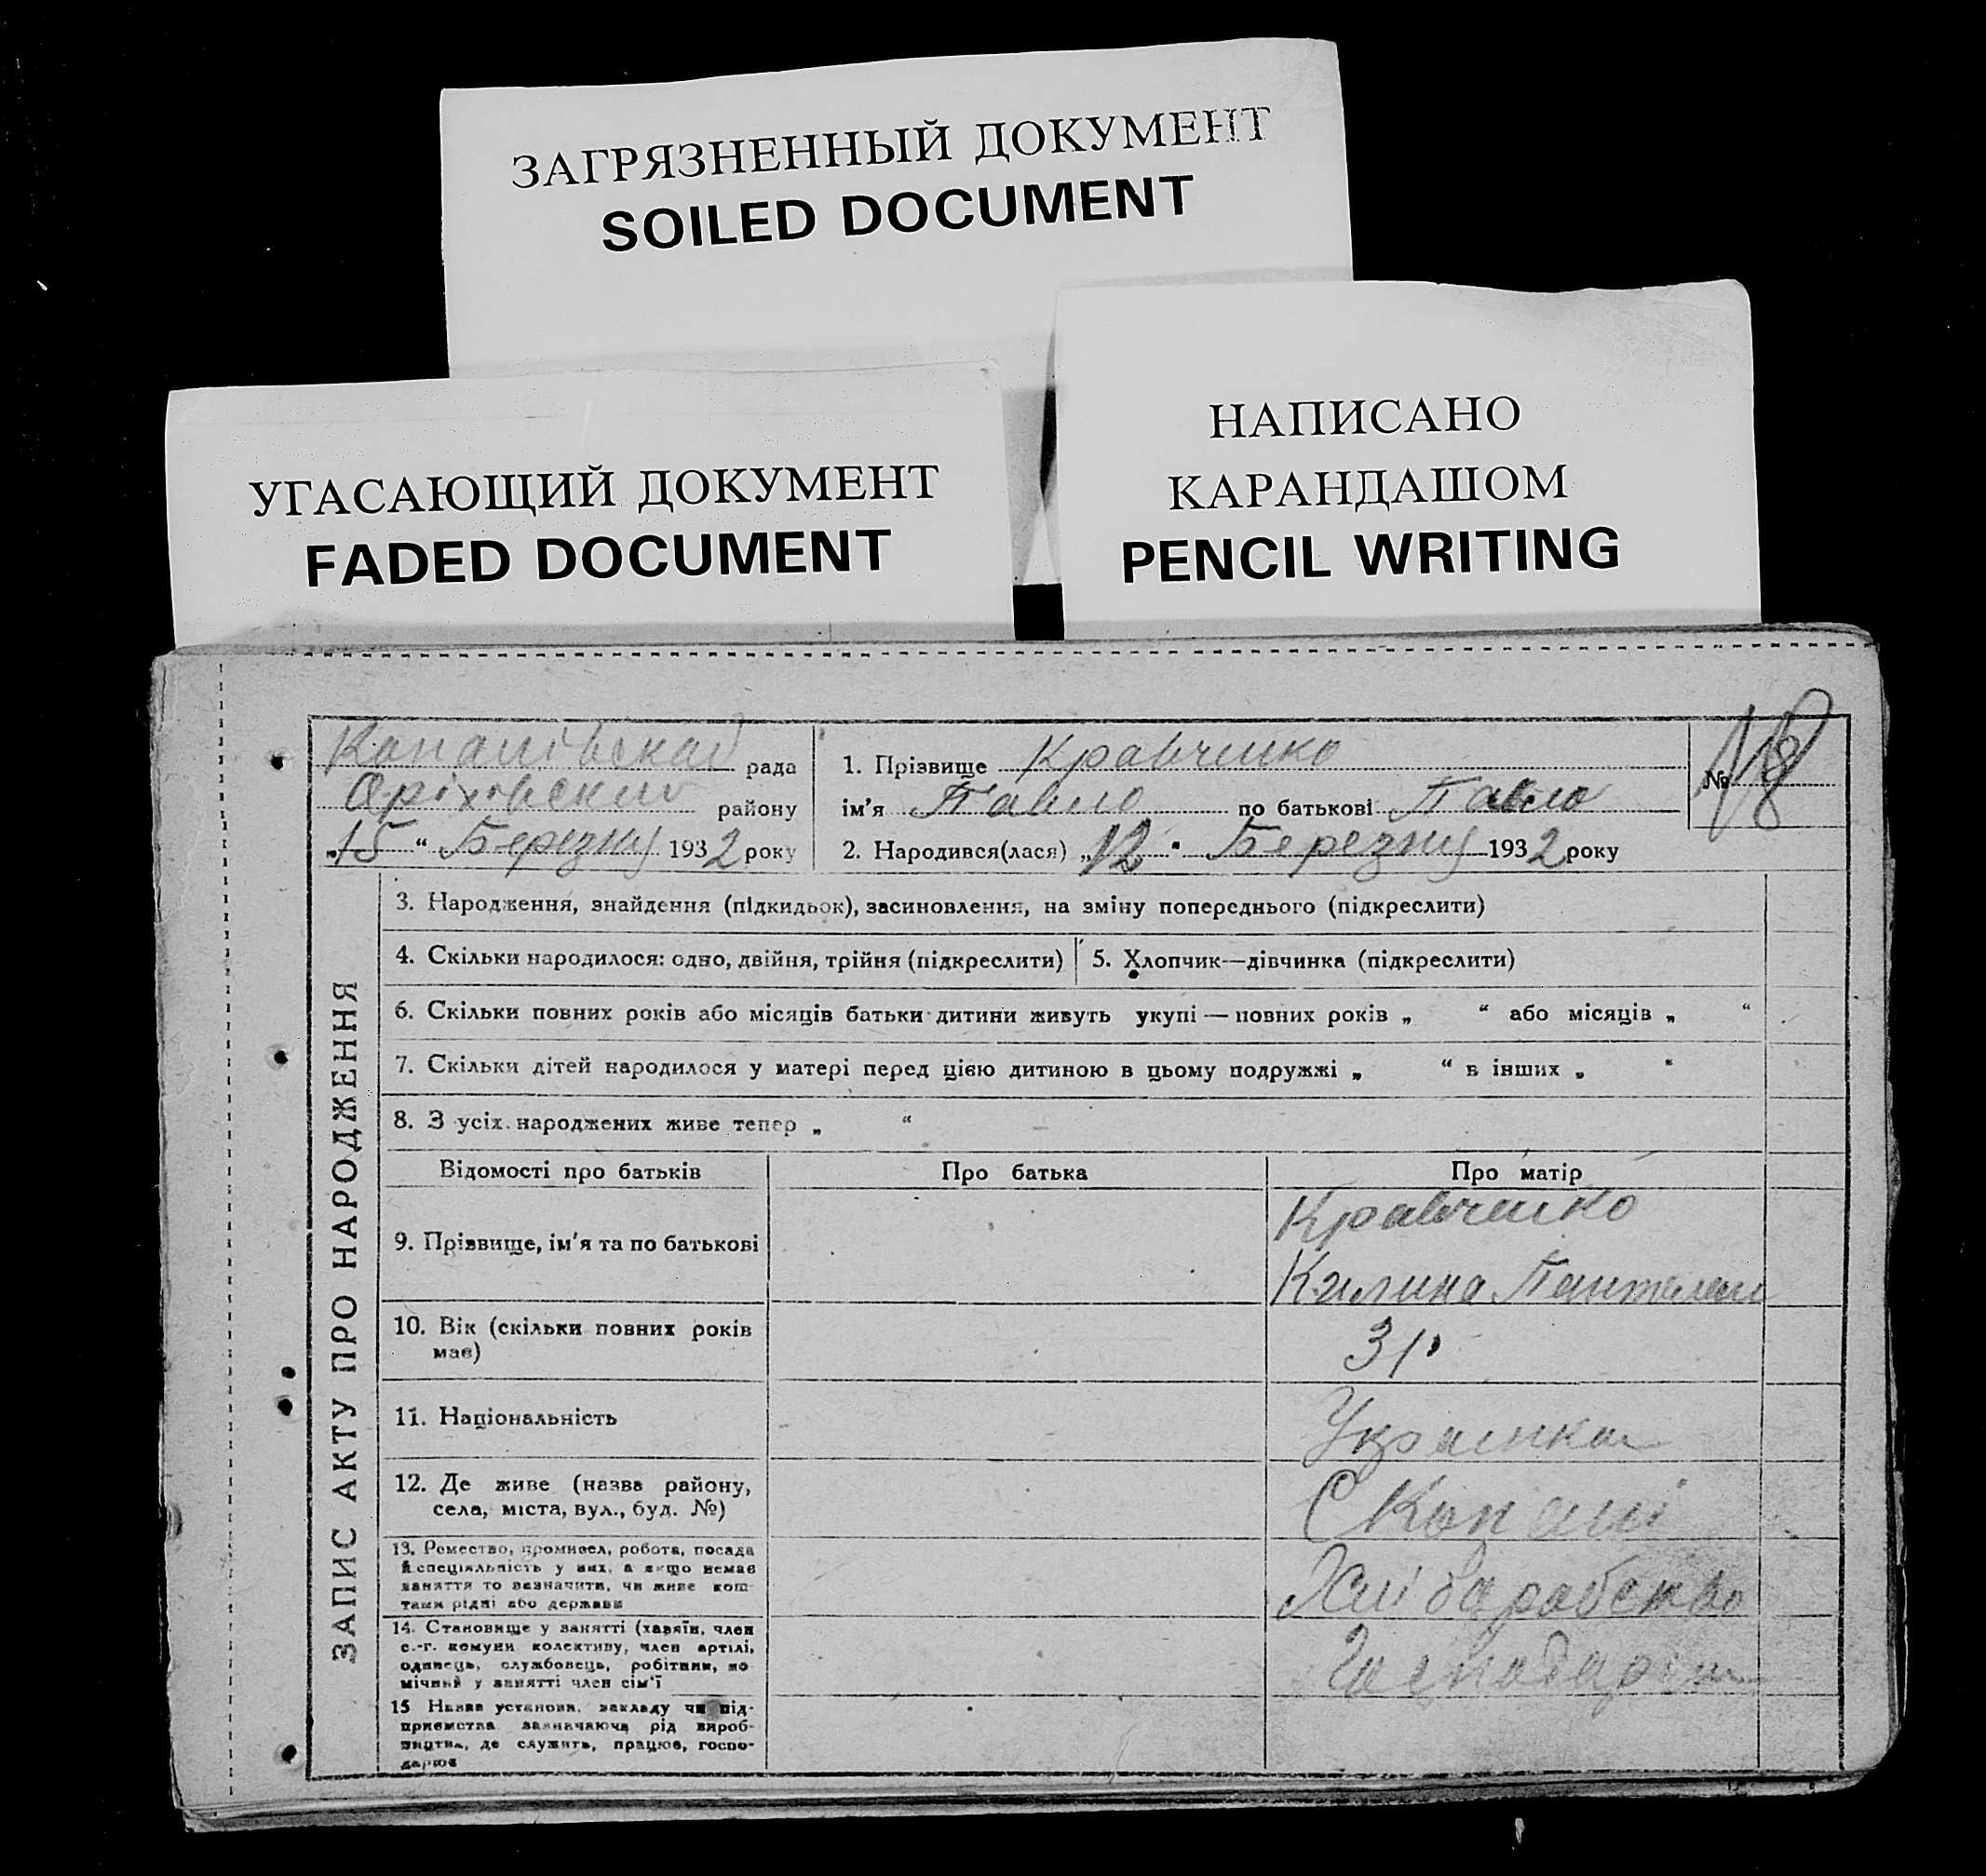 ЗАГРЯЗНЕННЫЙ ДОКУМЕНТ
SOILED DOCUMENT
УГАСАЮЩИЙ ДОКУМЕНТ
FADED DOCUMENT
НАПИСАНО
КАРАНДАШОМ
PENCIL WRITING
рада
району
„15“ Березня 1932 року
1. Прізвище Кравченко
ім'я Павло по батькові Павло
2. Народився(лася) „12" Березня 1932 року
№ 18
ЗАПИС АКТУ ПРО НАРОДЖЕННЯ
3. Народження, знайдення (підкидьок), засиновлення, на зміну попереднього (підкреслити)
4. Скільки народилося: одно, двійня, трійня (підкреслити)
5. Хлопчик—дівчинка (підкреслити)
6. Скільки повних років або місяців батьки дитини живуть укупі — повних років „ “ або місяців „ “
7. Скільки дітей народилося у матері перед цією дитиною в цьому подружжі „ “ в інших „ “
8. З усіх народжених живе тепер „ “
Відомості про батьків Про батька Про матір
9. Прізвище, ім'я та по батькові
Кравченко
Килина
10. Вік (скільки повних років
має)
31
11. Національність
Українка
12. Де живе (назва району,
села, міста, вул., буд. №)
С Копані
13. Ремество, промисел, робота, посада
й спеціяльність у них, а якщо немає
заняття то зазначити, чи живе кош-
тами рідні або держави
Хліборобство
14. Становище у занятті (хазяїн, член
с.-г. комуни колективу, член артілі,
одинець, службовець, робітник, по-
мічний у занятті член сім'ї
15 Назва установи, закладу чи під-
приємства зазначаючи рід вироб-
ництва, де служить, працює, госпо-
дарює